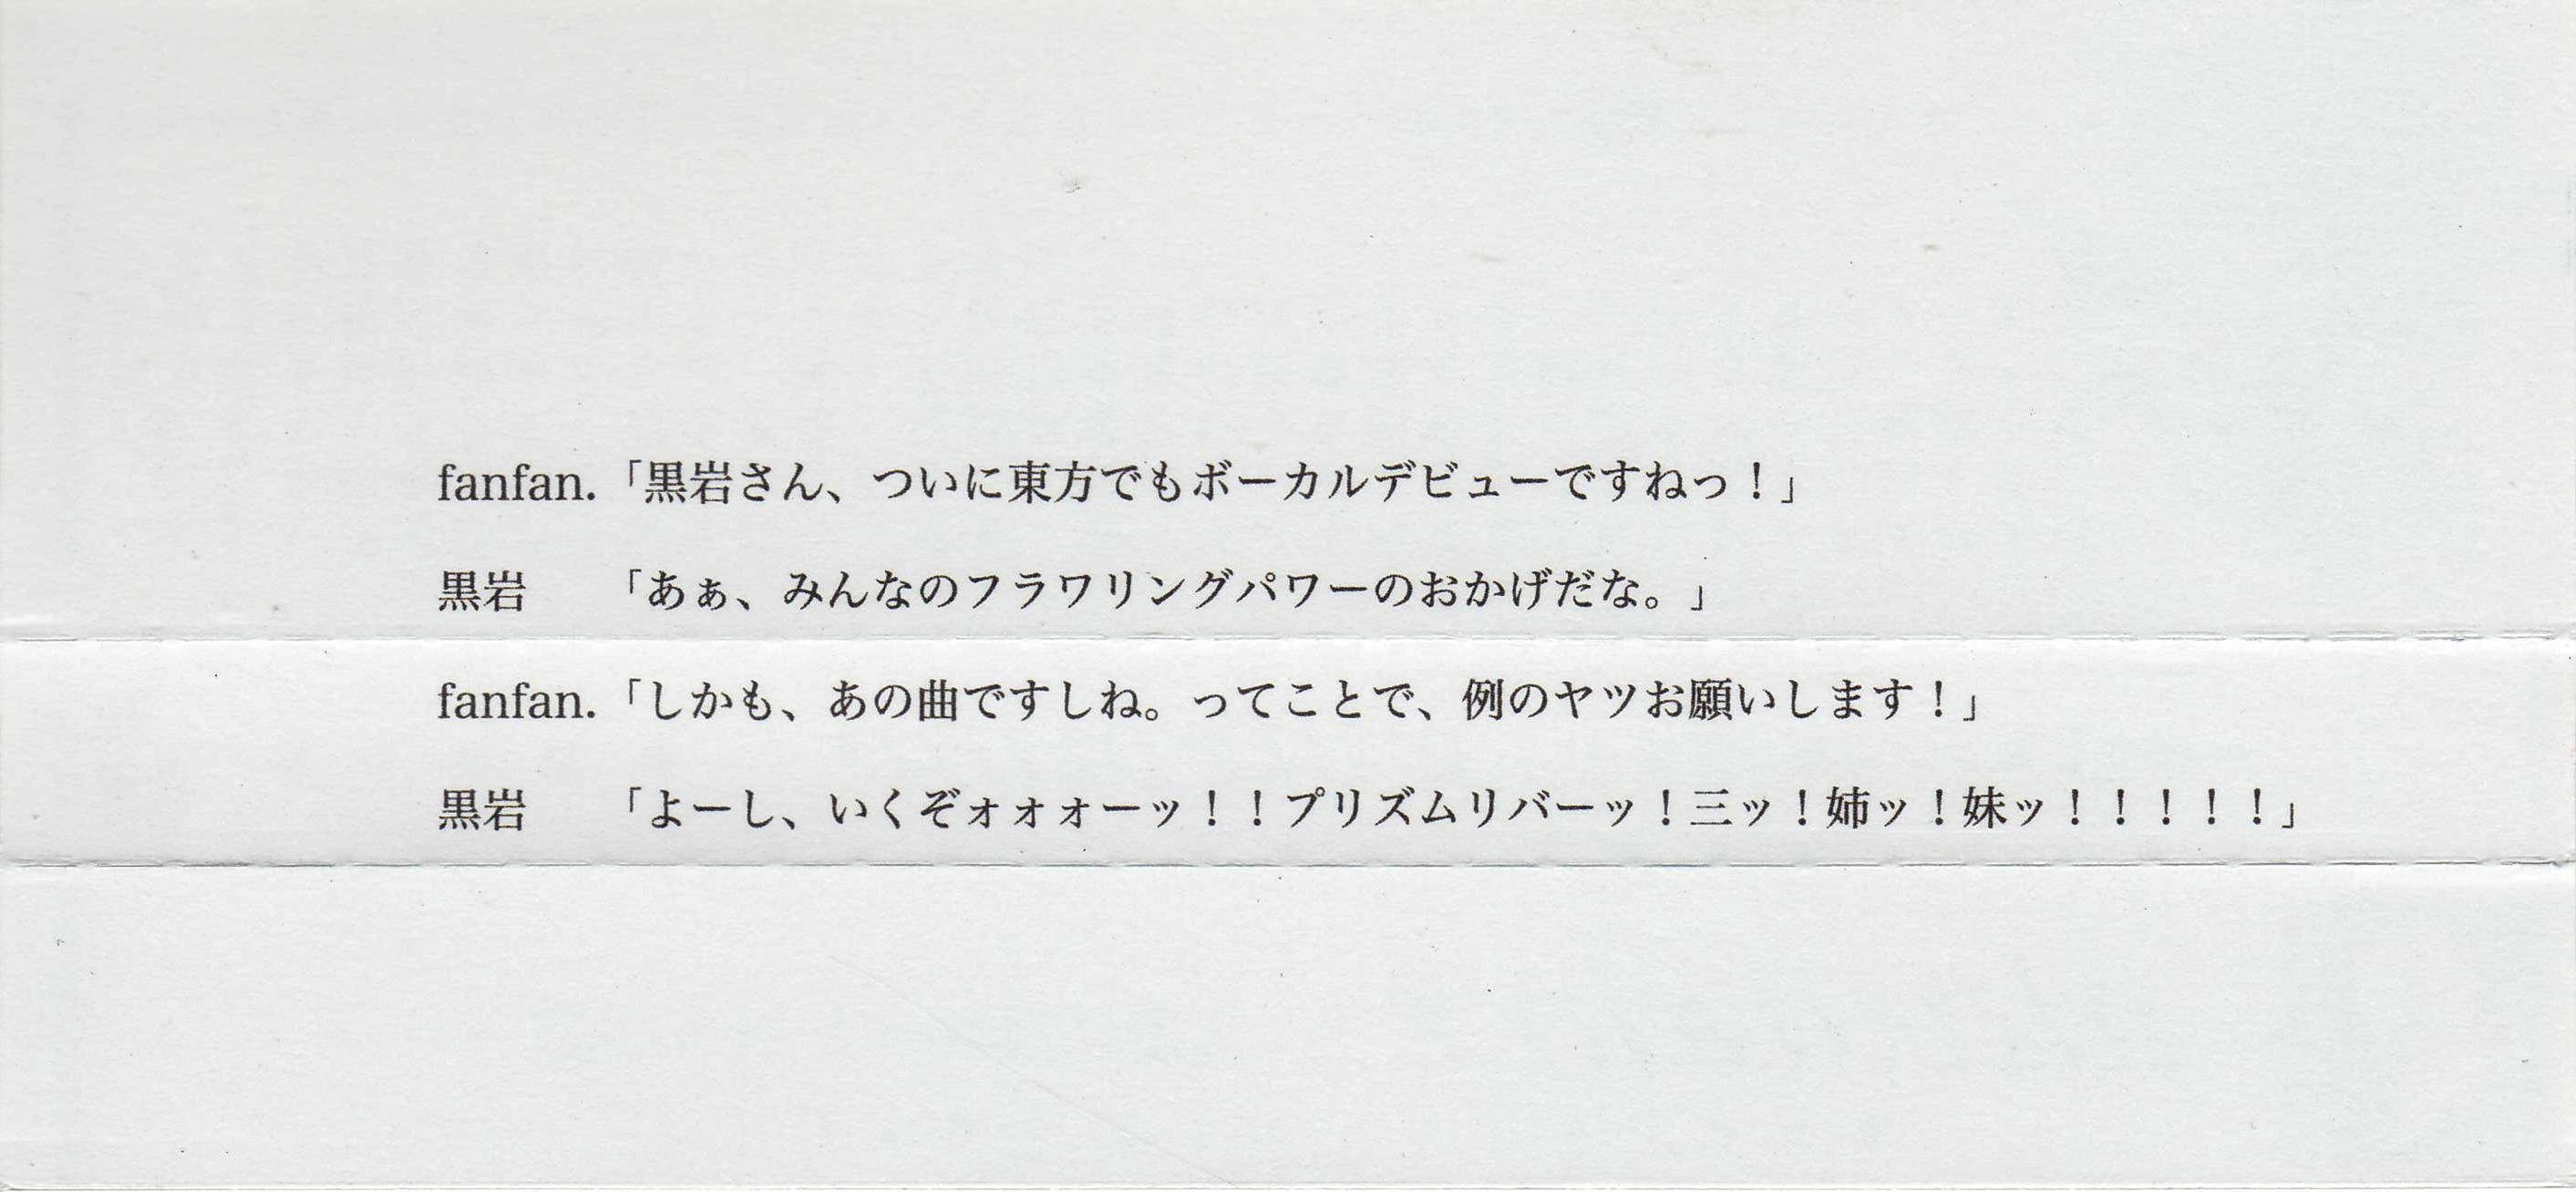 fanfan.「黒岩さん、ついに東方でもボーカルデビューですねっ！」
黒岩　　「あぁ、みんなのフラワリングパワーのおかげだな。」
fanfan.「しかも、あの曲ですしね。ってことで、例のヤツお願いします！」
黒岩　　「よーし、いくぞォォォーッ！！プリズムリバーッ！三ッ！姉ッ！妹ッ！！！！！」